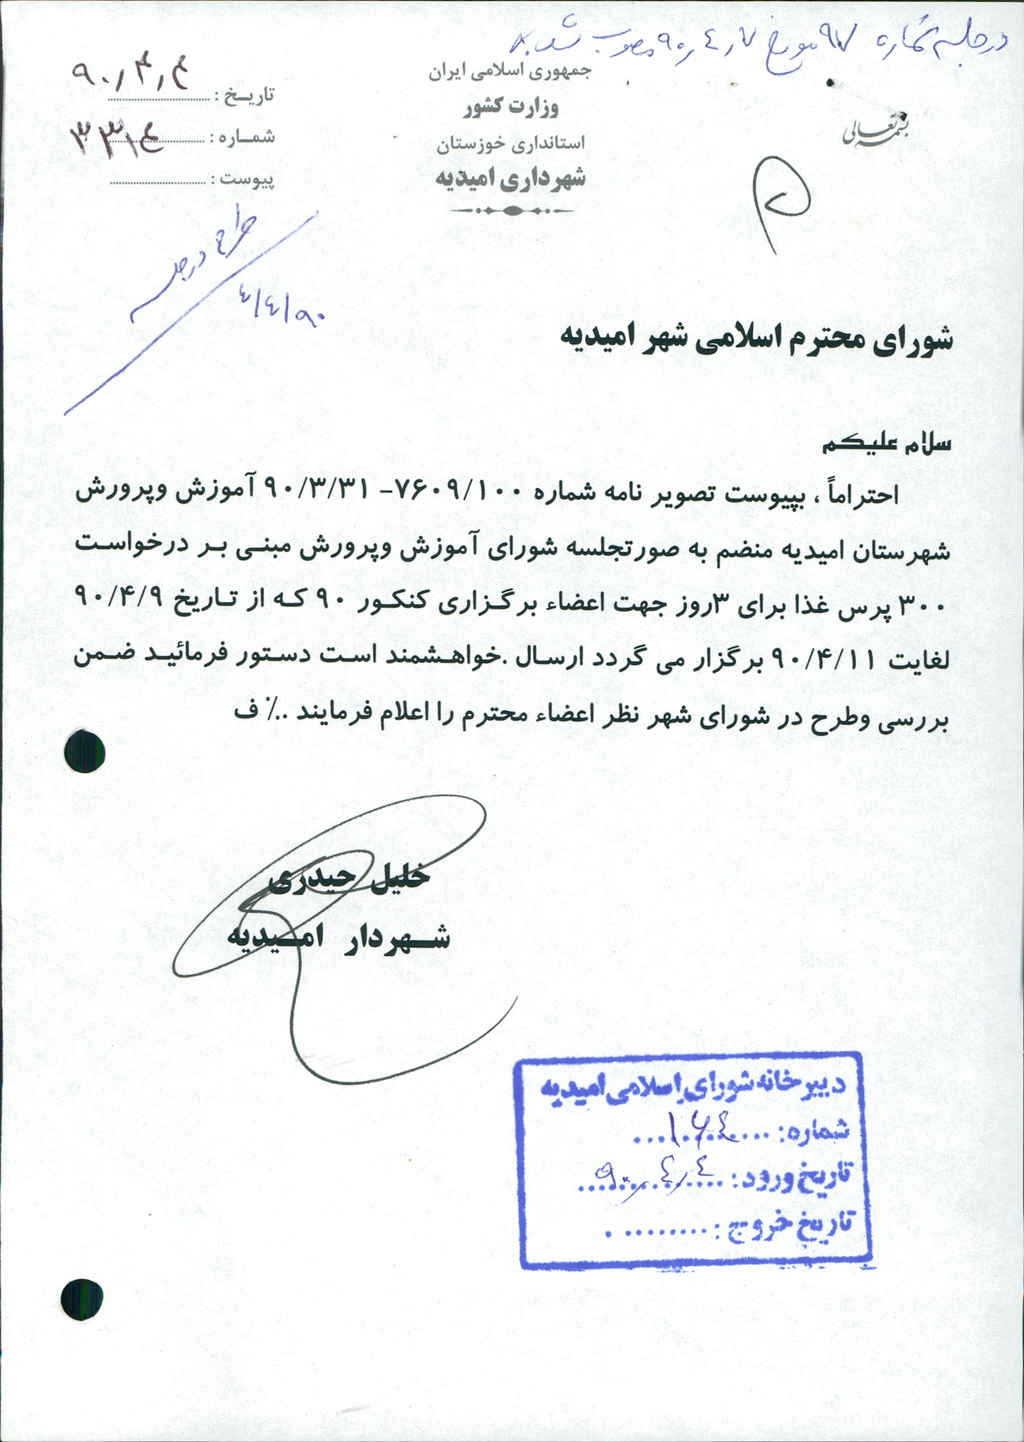 در جلسه شماره ۹۷ مورخ ۹۰٫۴٫۷ مصوب شد
بسمه تعالی
جمهوری اسلامی ایران
وزارت کشور
استانداری خوزستان
شهرداری امیدیه
تاریخ : ۹۰٫۴٫۴
شماره : ۳۳۱۴
پیوست :
طرح در جلسه
۹۰/۴/۴
شورای محترم اسلامی شهر امیدیه
سلام علیکم
احتراماً ، بپیوست تصویر نامه شماره ۷۶۰۹/۱۰۰– ۹۰/۳/۳۱ آموزش وپرورش
شهرستان امیدیه منضم به صورتجلسه شورای آموزش وپرورش مبنی بر درخواست
۳۰۰ پرس غذا برای ۳روز جهت اعضاء برگزاری کنکور ۹۰ که از تاریخ ۹۰/۴/۹
لغایت ۹۰/۴/۱۱ برگزار می گردد ارسال .خواهشمند است دستور فرمائید ضمن
بررسی وطرح در شورای شهر نظر اعضاء محترم را اعلام فرمایند ..٪ ف
خلیل حیدری
شهردار امیدیه
دبیرخانه شورای اسلامی امیدیه
شماره: ۱۶۴
تاریخ ورود: ۹۰٫۴٫۴
تاریخ خروج :